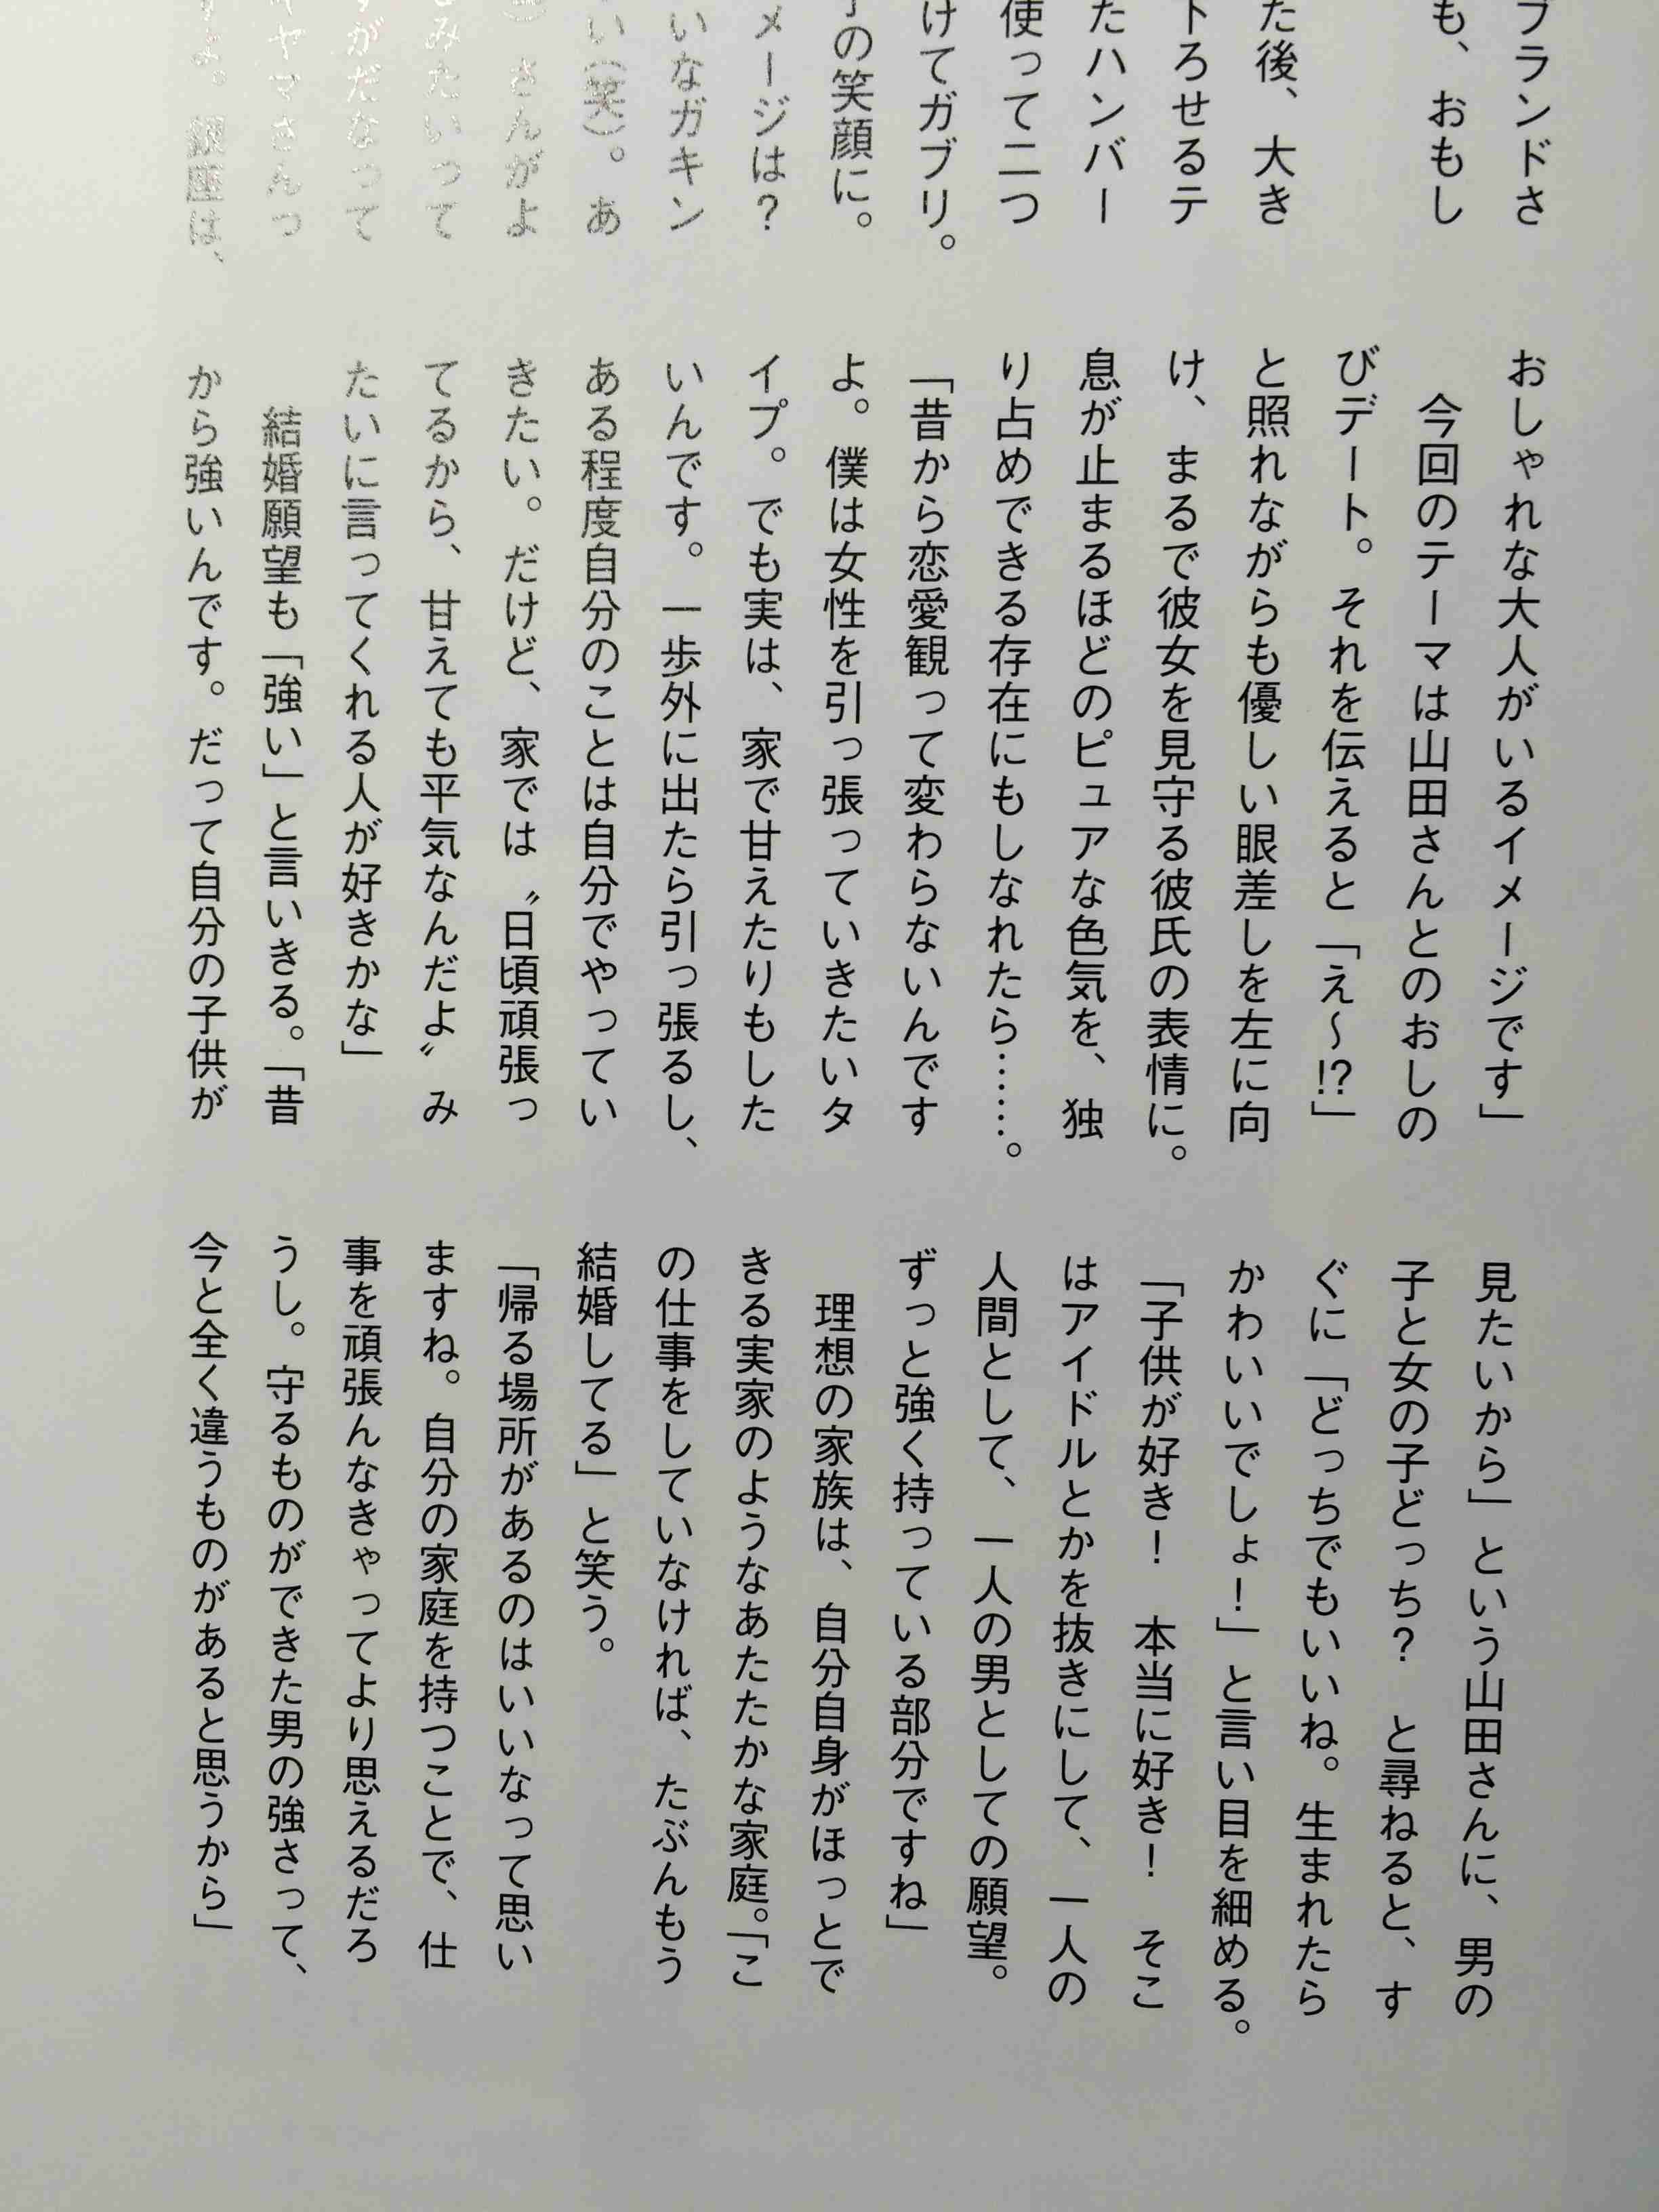 ブランドさ
も、おもし
た後、大き
下ろせるテ
たハンバー
使って二つ
けてガブリ。
の笑顔に。
メージは？
いなガキン
い（笑）。あ
さんがよ
みたいって
がだなって
ヤマさんっ
よ。銀座は、
おしゃれな大人がいるイメージです」
今回のテーマは山田さんとのおしの
びデート。それを伝えると「え〜!?」
と照れながらも優しい眼差しを左に向
け、まるで彼女を見守る彼氏の表情に。
息が止まるほどのピュアな色気を、独
り占めできる存在にもしなれたら……。
「昔から恋愛観って変わらないんです
よ。僕は女性を引っ張っていきたいタ
イプ。でも実は、家で甘えたりもした
いんです。一歩外に出たら引っ張るし、
ある程度自分のことは自分でやってい
きたい。だけど、家では〝日頃頑張っ
てるから、甘えても平気なんだよ〟み
たいに言ってくれる人が好きかな」
結婚願望も「強い」と言いきる。「昔
から強いんです。だって自分の子供が
見たいから」という山田さんに、男の
子と女の子どっち？　と尋ねると、す
ぐに「どっちでもいいね。生まれたら
かわいいでしょ！」と言い目を細める。
「子供が好き！　本当に好き！　そこ
はアイドルとかを抜きにして、一人の
人間として、一人の男としての願望。
ずっと強く持っている部分ですね」
理想の家族は、自分自身がほっとで
きる実家のようなあたたかな家庭。「こ
の仕事をしていなければ、たぶんもう
結婚してる」と笑う。
「帰る場所があるのはいいなって思い
ますね。自分の家庭を持つことで、仕
事を頑張んなきゃってより思えるだろ
うし。守るものができた男の強さって、
今と全く違うものがあると思うから」